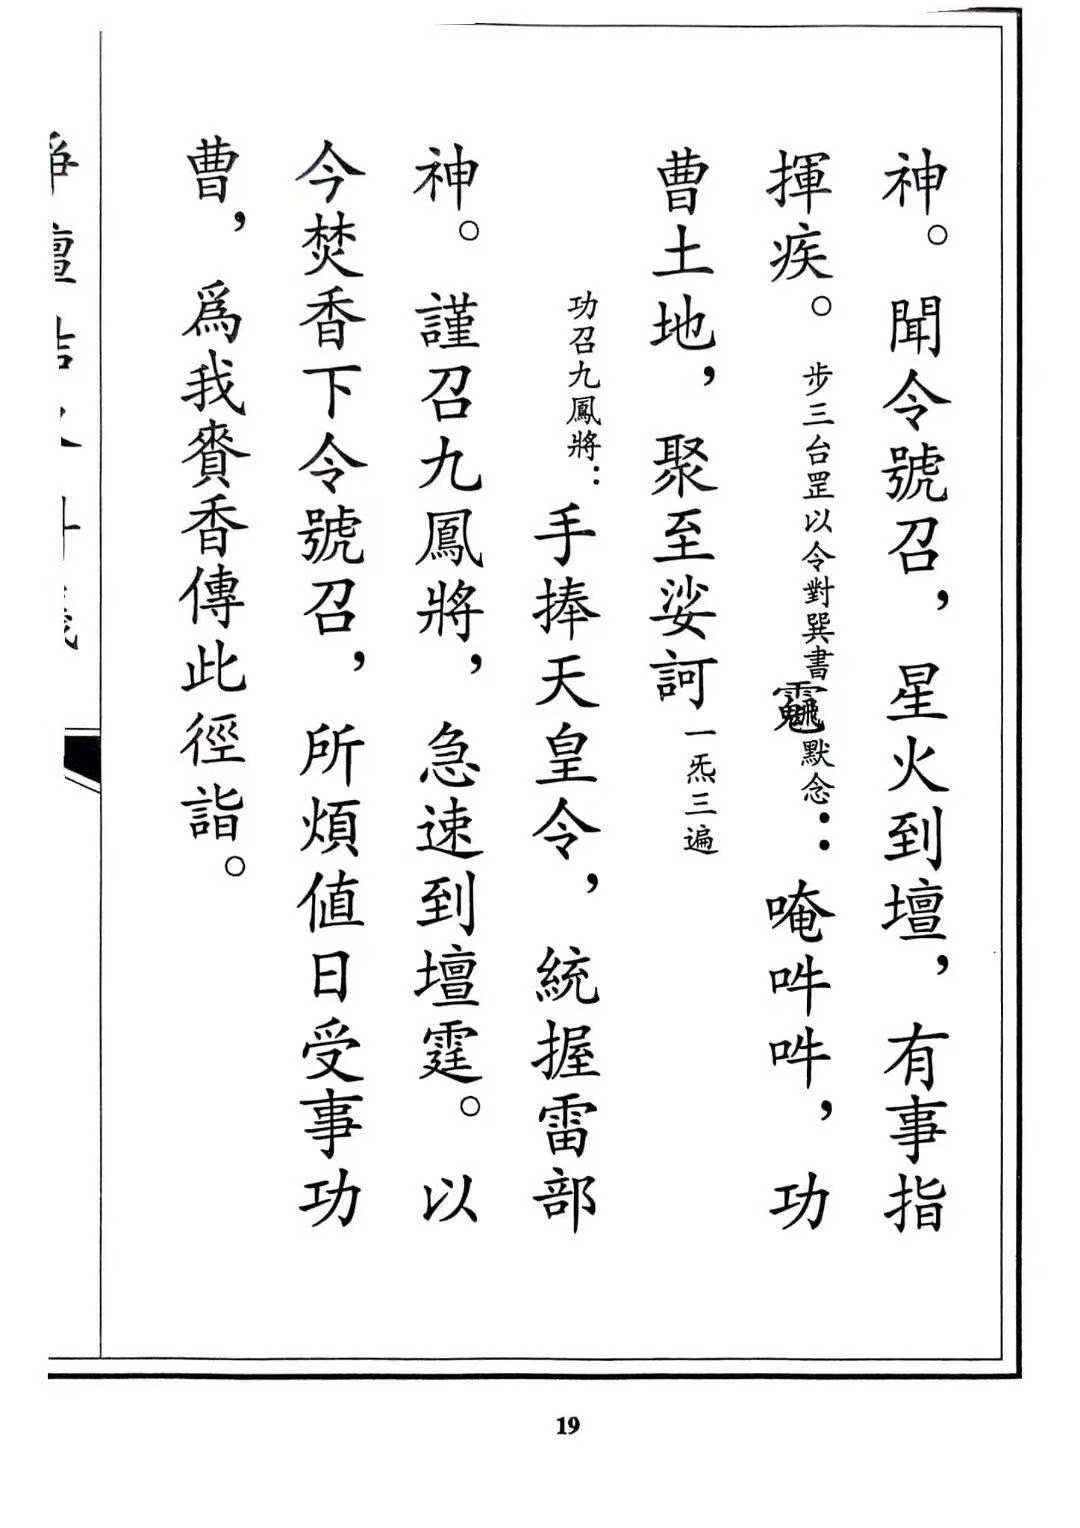 神。聞令號召，星火到壇，有事指
揮疾。步三台罡以令對巽書默念：唵吽吽，功
曹土地，聚至娑訶一炁三遍
功召九鳳將：手捧天皇令，統握雷部
神。謹召九鳳將，急速到壇霆。以
今焚香下令號召，所煩值日受事功
曹，爲我賫香傳此徑詣。
19